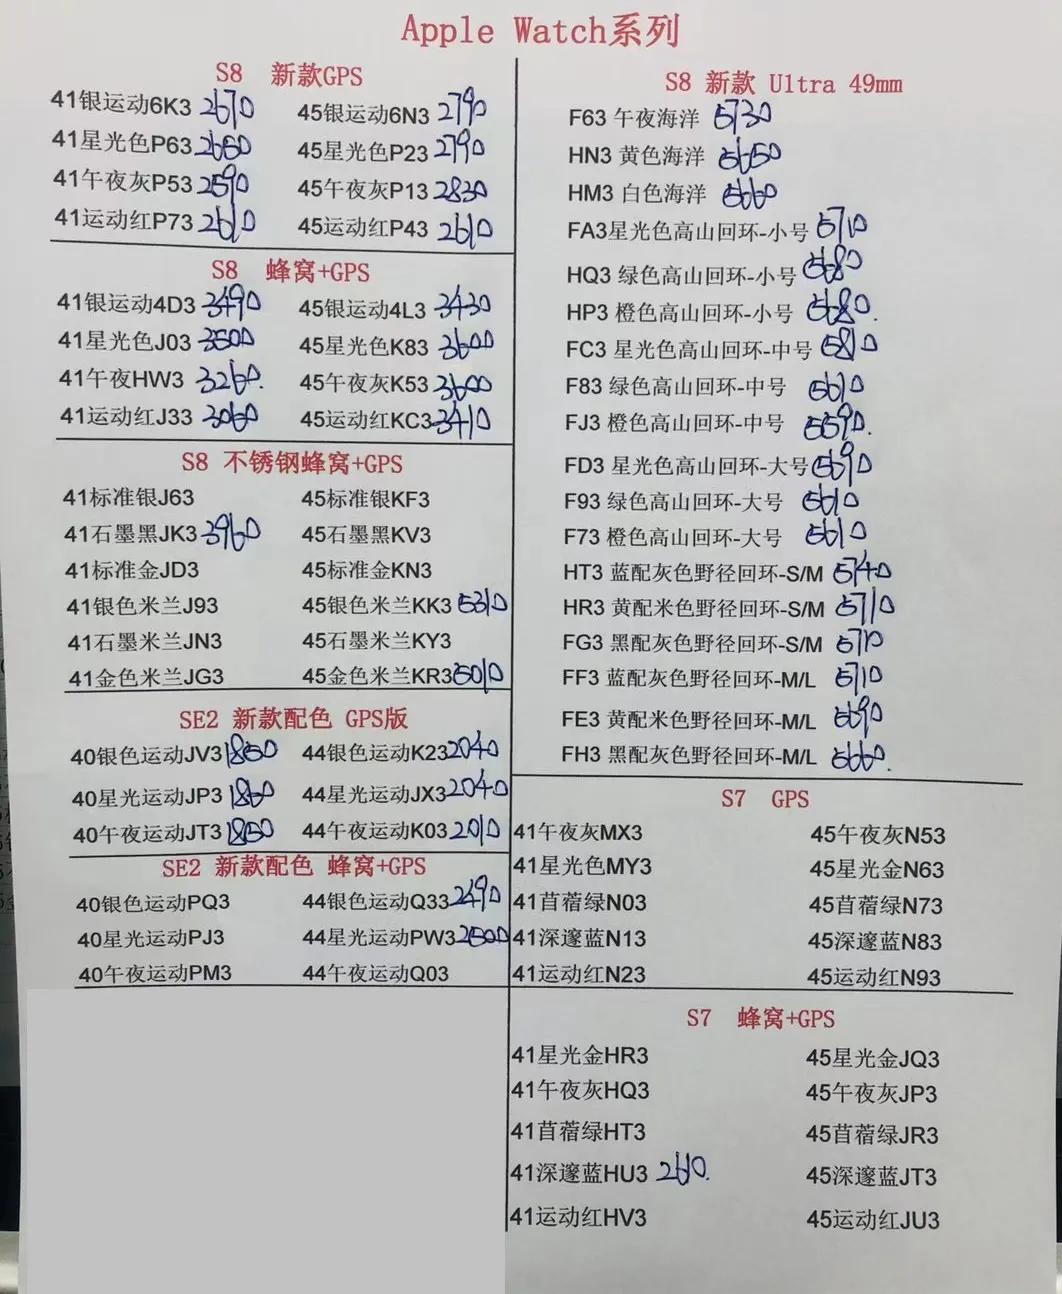 Apple Watch系列
S8 新款GPS
41银运动6K3 2670 45银运动6N3 2790
41星光色P63 2650 45星光色P23 2790
41午夜灰P53 2590 45午夜灰P13 2830
41运动红P73 2610 45运动红P43 2610
S8 蜂窝+GPS
41银运动4D3 3490 45银运动4L3 3430
41星光色J03 3500 45星光色K83 3600
41午夜HW3 3260. 45午夜灰K53 3600
41运动红J33 3060 45运动红KC3 3410
S8 不锈钢蜂窝+GPS
41标准银J63 45标准银KF3
41石墨黑JK3 3960 45石墨黑KV3
41标准金JD3 45标准金KN3
41银色米兰J93 45银色米兰KK3 5310
41石墨米兰JN3 45石墨米兰KY3
41金色米兰JG3 45金色米兰KR3 5010
SE2 新款配色 GPS版
40银色运动JV3 1850 44银色运动K23 2040
40星光运动JP3 1860 44星光运动JX3 2040
40午夜运动JT3 1850 44午夜运动K03 2010
SE2 新款配色 蜂窝+GPS
40银色运动PQ3 44银色运动Q33 2490
40星光运动PJ3 44星光运动PW3 2500
40午夜运动PM3 44午夜运动Q03
S8 新款 Ultra 49mm
F63 午夜海洋 5730
HN3 黄色海洋 5650
HM3 白色海洋 5660
FA3星光色高山回环-小号 5710
HQ3 绿色高山回环-小号 5680
HP3 橙色高山回环-小号 5680.
FC3 星光色高山回环-中号 5810
F83 绿色高山回环-中号 5610
FJ3 橙色高山回环-中号 5590.
FD3 星光色高山回环-大号 5690
F93 绿色高山回环-大号 5610
F73 橙色高山回环-大号 5610
HT3 蓝配灰色野径回环-S/M 5740
HR3 黄配米色野径回环-S/M 5710
FG3 黑配灰色野径回环-S/M 5710
FF3 蓝配灰色野径回环-M/L 5710
FE3 黄配米色野径回环-M/L 5690
FH3 黑配灰色野径回环-M/L 5660.
S7 GPS
41午夜灰MX3 45午夜灰N53
41星光色MY3 45星光金N63
41苜蓿绿N03 45苜蓿绿N73
41深邃蓝N13 45深邃蓝N83
41运动红N23 45运动红N93
S7 蜂窝+GPS
41星光金HR3 45星光金JQ3
41午夜灰HQ3 45午夜灰JP3
41苜蓿绿HT3 45苜蓿绿JR3
41深邃蓝HU3 2610. 45深邃蓝JT3
41运动红HV3 45运动红JU3